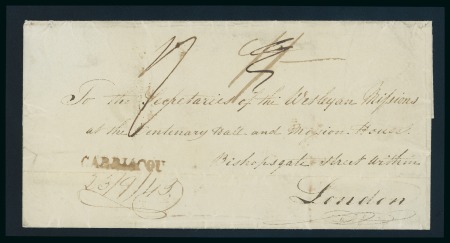 To the Secretaries of the Wesleyan Missions
at the Centenary Hall and Mission House
Bishopsgate Street Within
London
CARRIACOU
23/9/45